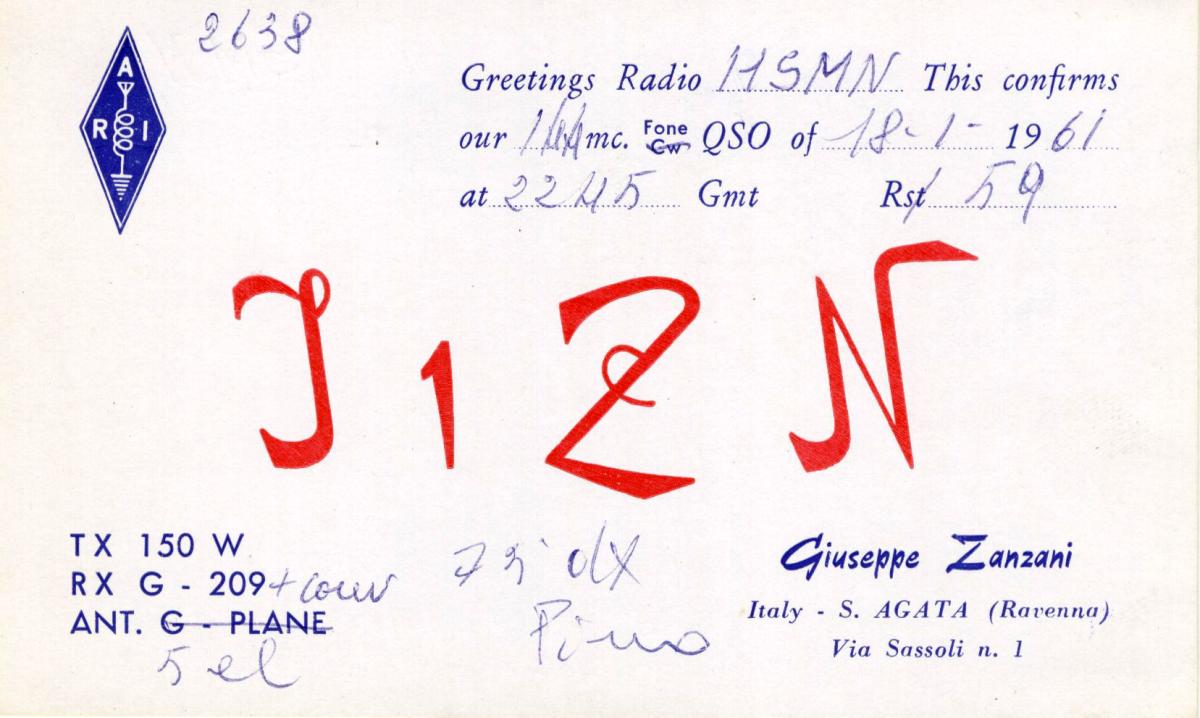 2638
A
R I
Greetings Radio I1SMN This confirms
our 144 mc. Fone Cw QSO of 18-1- 1961
at 2245 Gmt Rst 59
I1ZN
TX 150 W
RX G - 209 + conv
ANT. G - PLANE
5 el
73 dx
Pino
Giuseppe Zanzani
Italy - S. AGATA (Ravenna)
Via Sassoli n. 1